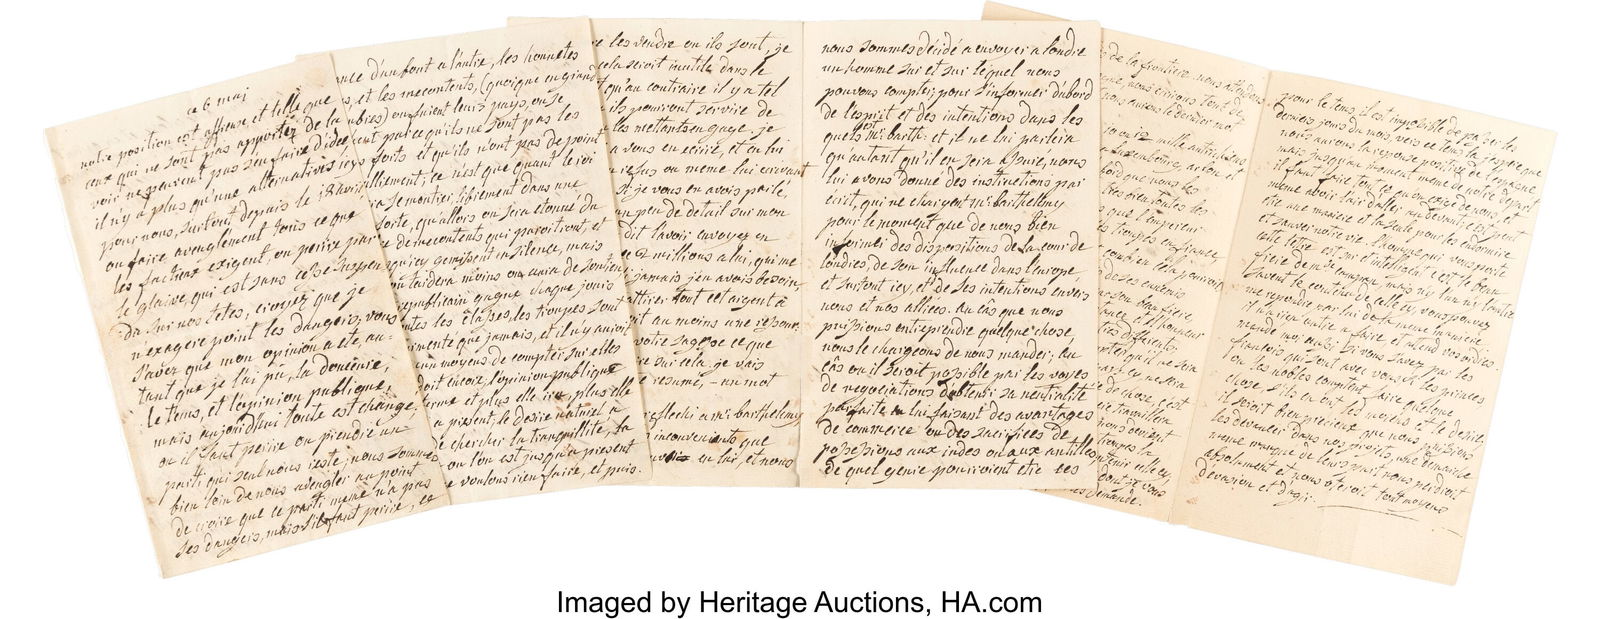 ce 6 maj
notre position est affreuse et telle que
ceux qui ne sont pas apportéz de la
voir ne peuvent pas s'en faire d'idée,
il n'y a plus qu'une alternative icy
pour nous, surtout depuis le 18 avril
ou faire aveuglement tous ce que
les facteux exigent, ou perire par
le glaive, qui est sans cesse suspen
du sur nos tetes, croyez que je
n'exagere point les dangers; vous
savez que mon opinion a ete, au-
tant que je l'ai pû, la douceur,
le tems, et l'opinion publique,
mais aujourd'hui toute est changé,
ou il faut perire ou prendre un
parti qui seul nous reste; nous sommes
bien loin de nous aveugler au point
de croire que ce parti même n'a pas
ses dangers, mais s'il faut perire, ce
d'un bout a l'autre, les honnetes
, et les mecontents, (quoique en grand
) ou fuient leurs pays, ou se
parce qu'ils ne sont pas les
forts et qu'ils n'ont pas de point
lliement; ce n'est que quant le roi
ra se montrer, librement dans une
forte, qu'allors on sera etonné du
e de mecontents qui paroitront, et
qu'icy gemissent en silence, mais
on tardera moins on aura de soutien
republicain gagne chaque jours
tes les classes, les troupes sont
imenté que jamais, et il n'y auroit
un moyens de compter sur elles
doit encore, l'opinion publique
ferme et plus elle ira, plus elle
a present, le desire naturel a
é chercher la tranquillité, la
on l'on est jusqu'a present
e vouloirs rien faire, et puis
e les vendre ou ils sont, je
cela seroit inutile dans le
qu'au contraire il y a tel
ils pouroient servire de
les mettants en gage. je
a vous en ecrire, et ou lui
ressus ou meme lui ecrivant
st; je vous en avois parlé,
un peu de detail sur mon
dit l'avoir envoyez en
e 2 millions a lui, qui me
i jamais j'en avois besoin,
attirer tout cet argent a
oit au moins une ressour-
votre sagesse ce que
re sur cela, je vais
e resumé, - un mot
reflechi a mr barthelemy,
inconvenients que
en lui, et nous
nous sommes décidé a envoyer a londre
un homme sur et sur lequel nous
pouvons compter; pour s'informer dubord
de l'esprit et des intentions dans les
quels est mr barth: et il ne lui parlera
qu'autant qu'il en sera assurré, nous
lui avons donné des instructions par
ecrit, qui ne chargent mr barthelemy
pour le moment que de nous bien
informer des dispositions de la cour de
londres, de son influence dans l'europe
et surtout icy, et de ses intentions envers
nous et nos alliees. Au cas que nous
puissions entreprendre quelque chose,
nous le chargeons de nous mander, Au
cas ou il seroit possible par les voyes
de negociations d'obtenir sa neutralité
parfaite en lui faisant des avantages
de commerce ou des sacrifices de
possessions aux indes ou aux antilles
de quel genre pouroient etre ces
de la frontiere, nous attendons
nous ecrirons tout de
nous aurons le dernier mot
10 ou 12 mille autrichiens
Luxembourg, arlon et
bord que nous les
tres bien toutes les
que l'empereur
s troupes en france,
combien cela pouroit
de ses ennemis
r son beau frere,
l'honneur
tis differents
de chose, c'est
travaillera
nous devient
troupes la
obtenir celle cy,
dont je vous
demande.
pour le tems, il est impossible de passer les
derniers jours du mois, vois ce tems là j'espere que
nous aurons la reponse positive de l'espagne
mais jusqu'au moment meme de notre depart
il faut faire tout ce qu'on exige de nous, et
meme avoir l'air d'aller au devant, c'est peut
etre une maniere et la seule pour les endormire
et sauver notre vie. l'homme qui vous porte
cette lettre est sur et intelligent c'est le beau
frere de mde campan, mais n'y l'un n'y l'autre
savent le contenu de celle cy, vous pouvez
me repondre par lui de la meme maniere
il n'a rien autre a faire et attend vos ordres.
mandé moi aussi si vous savez par les
francois qui sont avec vous si les princes
ou les nobles comptent faire quelque
chose, s'ils en ont les moyens et le desire,
il seroit bien precieux que nous puissions
les devancer dans nos projets, une demarche
meme manquée de leurs part, nous perdroit
absolument et nous oteroit tout moyens
d'evasion et d'agir.
Imaged by Heritage Auctions, HA.com